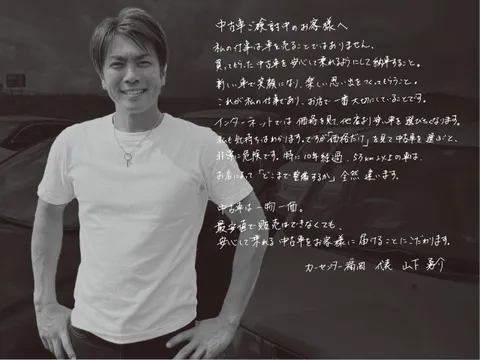 中古車ご検討中のお客様へ
私の仕事は車を売ることではありません。
買ってもらった中古車を安心して乗れるようにして納車すること。
新しい車で笑顔になり、楽しい思い出をつくってもらうこと。
これが私の仕事であり、お店で一番大切にしていることです。
インターネットでは価格を見て他店より安い車を選びたくなります。
私も気持ちはわかります。ですが「価格だけ」を見て中古車を選ぶと、
非常に危険です。特に10年経過、5万km以上の車は
お店によって「どこまで整備するか」全然違います。
中古車は一物一価。
最安値で販売はできなくても、
安心して乗れる中古車をお客様に届けることにこだわります。
カーセンター福岡 代表 山下 勇介